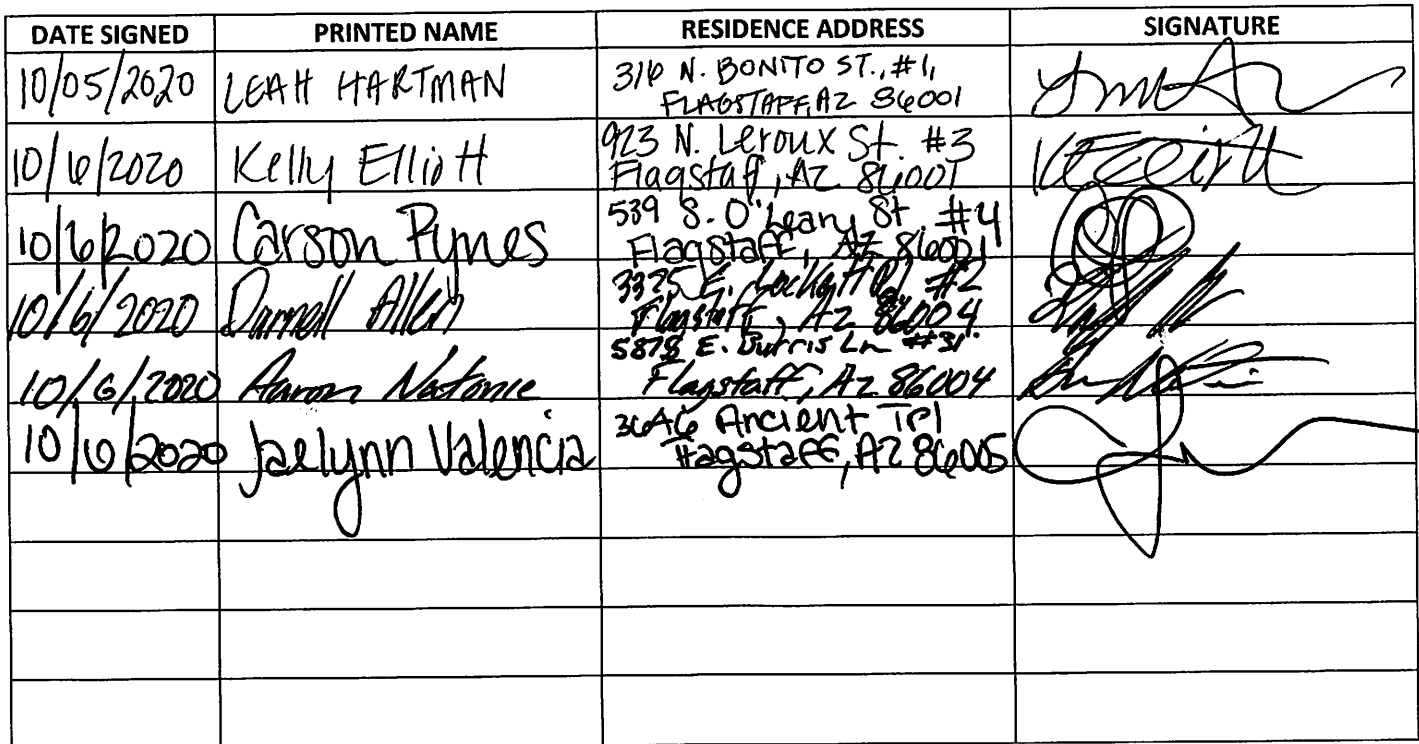 DATE SIGNED PRINTED NAME RESIDENCE ADDRESS SIGNATURE
10/05/2020 LEAH HARTMAN 316 N. BONITO ST., #1,
FLAGSTAFF, AZ 86001
10/6/2020 Kelly Elliott 923 N. Leroux St. #3
Flagstaff, AZ 86001
10/6/2020 Carson Pynes 539 S. O'Leary St. #4
Flagstaff, AZ 86001
10/6/2020 Darnell Allen 3325 E. Lockett #2
Flagstaff, AZ 86004
10/6/2020 Aaron Natonie 5878 E. Burris Ln #31
Flagstaff, Az 86004
10/6/2020 Jaelynn Valencia Ancient Trl
Flagstaff, AZ 86005